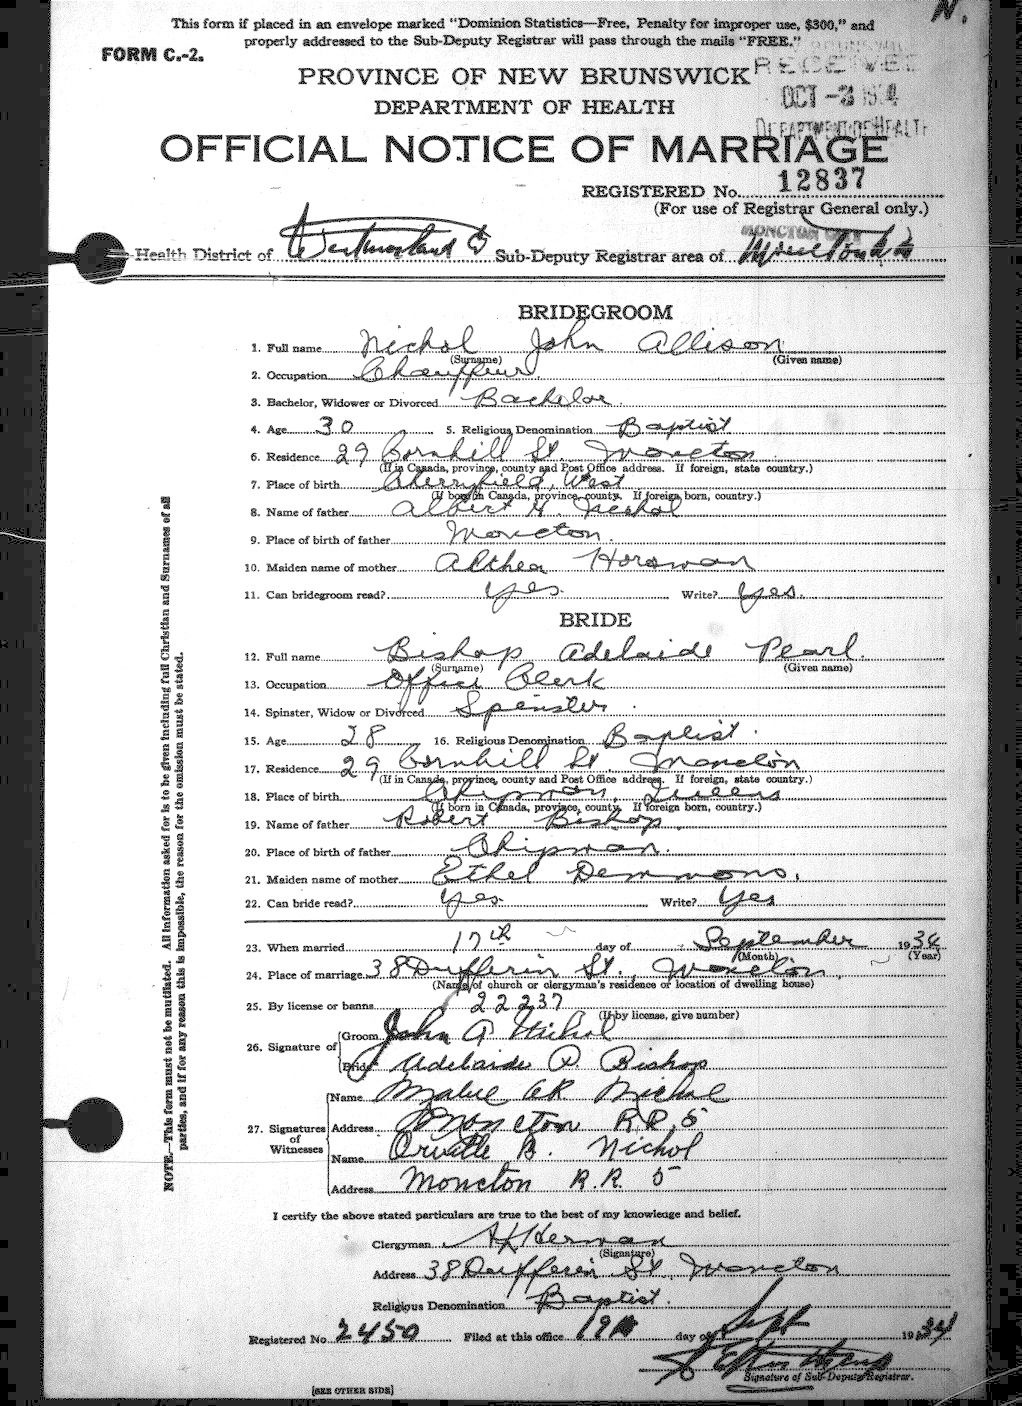 N.
This form if placed in an envelope marked "Dominion Statistics—Free, Penalty for improper use, $300," and
properly addressed to the Sub-Deputy Registrar will pass through the mails "FREE."
FORM C.-2.
RECEIVED
OCT -3 1934
DEPARTMENT OF HEALTH
PROVINCE OF NEW BRUNSWICK
DEPARTMENT OF HEALTH
OFFICIAL NOTICE OF MARRIAGE
REGISTERED No. 12837
(For use of Registrar General only.)
MONCTON CITY
Health District of Westmorland Sub-Deputy Registrar area of
BRIDEGROOM
1. Full name Nichol John Allison
(Surname) (Given name)
2. Occupation Chauffeur
3. Bachelor, Widower or Divorced Bachelor
4. Age 30 5. Religious Denomination Baptist
6. Residence 29 Cornhill St. Moncton
(If in Canada, province, county and Post Office address. If foreign, state country.)
7. Place of birth Cherryfield, West
(If born in Canada, province, county. If foreign born, country.)
8. Name of father Albert H. Nichol
9. Place of birth of father Moncton.
10. Maiden name of mother Althea Horsman
11. Can bridegroom read? Yes. Write? Yes.
BRIDE
12. Full name Bishop Adelaide Pearl.
(Surname) (Given name)
13. Occupation Office Clerk
14. Spinster, Widow or Divorced Spinster.
15. Age 28 16. Religious Denomination Baptist.
17. Residence 29 Cornhill St. Moncton
(If in Canada, province, county and Post Office address. If foreign, state country.)
18. Place of birth Chipman, Queens
(If born in Canada, province, county. If foreign born, country.)
19. Name of father Robert Bishop.
20. Place of birth of father Chipman.
21. Maiden name of mother Ethel Demmons.
22. Can bride read? Yes. Write? Yes
23. When married 17th day of September 1934
(Month) (Year)
24. Place of marriage 38 Dufferin St., Moncton.
(Name of church or clergyman's residence or location of dwelling house)
25. By license or banns 22237
(If by license, give number)
26. Signature of Groom John A Nichol
Bride Adelaide P. Bishop
27. Signatures of Witnesses
Name Nichol
Address Moncton R.R. 5
Name Orville B. Nichol
Address Moncton R.R. 5
I certify the above stated particulars are true to the best of my knowledge and belief.
Clergyman Herman
(Signature)
Address 38 Dufferin St., Moncton
Religious Denomination Baptist.
Registered No. 2450 Filed at this office 19 day of Sept 1934
Signature of Sub-Deputy Registrar.
[SEE OTHER SIDE]
NOTE.—This form must not be mutilated. All information asked for is to be given including full Christian and Surnames of all
parties, and if for any reason this is impossible, the reason for the omission must be stated.